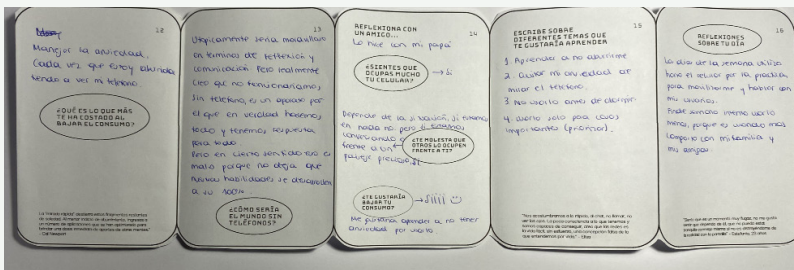 12
Manejar la ansiedad.
Cada vez que estoy aburrida
tiendo a ver mi teléfono
¿QUÉ ES LO QUE MÁS
TE HA COSTADO AL
BAJAR EL CONSUMO?
- Cal Newport
13
Utópicamente sería maravilloso
en términos de reflexión y
comunicación. Pero realmente
creo que no funcionaríamos
sin teléfono, es un aparato por
el que en verdad hacemos
todo y tenemos respuesta
para todo.
Pero en cierto sentido eso es
malo porque no deja que
nuestras habilidades se desarrollen
a su 100%
¿CÓMO SERÍA
EL MUNDO SIN
TELÉFONOS?
14
REFLEXIONA CON
UN AMIGO...
Lo hice con mi papá
¿SIENTES QUE
OCUPAS MUCHO
TU CELULAR?
→ Sí
Depende de la situación, si estamos
en nada no pero si estamos
conversando o
frente a un
paisaje precioso, sí
¿TE MOLESTA QUE
OTROS LO OCUPEN
FRENTE A TI?
¿TE GUSTARÍA
BAJAR TU
CONSUMO?
Me gustaría aprender a no tener
ansiedad por usarlo
15
ESCRIBE SOBRE
DIFERENTES TEMAS QUE
TE GUSTARÍA APRENDER
1. Aprender a no aburrirme
2. Quitar mi ansiedad de
mirar el teléfono.
3. No usarlo antes de dormir
4. Usarlo solo para cosas
importantes (priorizar).
16
REFLEXIONES
SOBRE TU DÍA
Los días de la semana utilizo
harto el celular por la práctica,
para movilizarme y hablar con
mis usuarios.
Finde semana intento usarlo
menos, porque es cuando más
comparto con mi familia y
mis amigos.